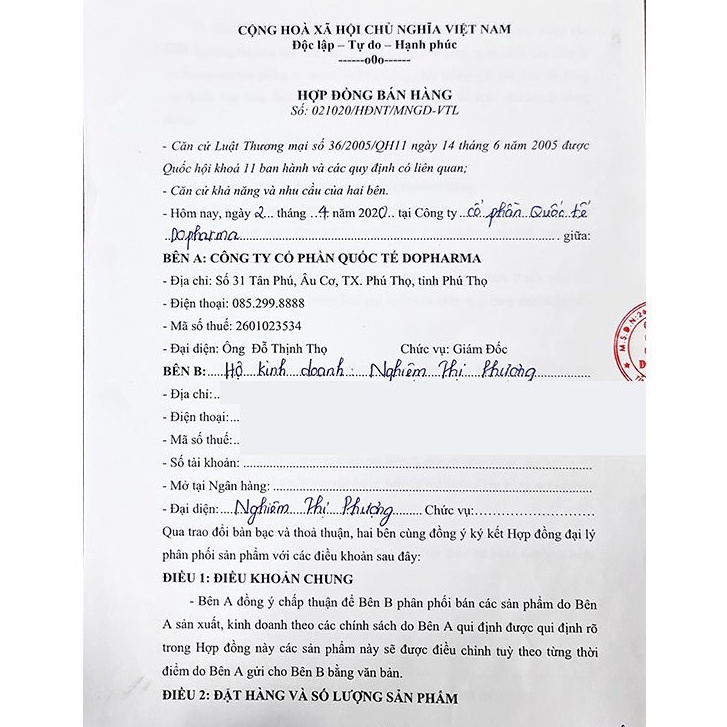 CỘNG HOÀ XÃ HỘI CHỦ NGHĨA VIỆT NAM
Độc lập – Tự do – Hạnh phúc
------o0o------
HỢP ĐỒNG BÁN HÀNG
Số: 021020/HĐNT/MNGD-VTL
- Căn cứ Luật Thương mại số 36/2005/QH11 ngày 14 tháng 6 năm 2005 được
Quốc hội khoá 11 ban hành và các quy định có liên quan;
- Căn cứ khả năng và nhu cầu của hai bên.
- Hôm nay, ngày 2 tháng 4 năm 2020 tại Công ty cổ phần Quốc tế
Dopharma giữa:
BÊN A: CÔNG TY CỔ PHẦN QUỐC TẾ DOPHARMA
- Địa chỉ: Số 31 Tân Phú, Âu Cơ, TX. Phú Thọ, tỉnh Phú Thọ
- Điện thoại: 085.299.8888
- Mã số thuế: 2601023534
- Đại diện: Ông Đỗ Thịnh Thọ Chức vụ: Giám Đốc
BÊN B: Hộ kinh doanh: Nghiêm Thị Phương
- Địa chỉ:
- Điện thoại:
- Mã số thuế:
- Số tài khoản:
- Mở tại Ngân hàng:
- Đại diện: Nghiêm Thị Phượng Chức vụ:
Qua trao đổi bàn bạc và thoả thuận, hai bên cùng đồng ý ký kết Hợp đồng đại lý
phân phối sản phẩm với các điều khoản sau đây:
ĐIỀU 1: ĐIỀU KHOẢN CHUNG
- Bên A đồng ý chấp thuận để Bên B phân phối bán các sản phẩm do Bên
A sản xuất, kinh doanh theo các chính sách do Bên A qui định được qui định rõ
trong Hợp đồng này các sản phẩm này sẽ được điều chỉnh tuỳ theo từng thời
điểm do Bên A gửi cho Bên B bằng văn bản.
ĐIỀU 2: ĐẶT HÀNG VÀ SỐ LƯỢNG SẢN PHẨM